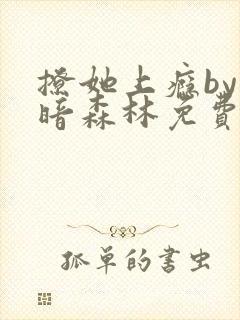 撩她上瘾by
暗森林免費
孤单的書虫